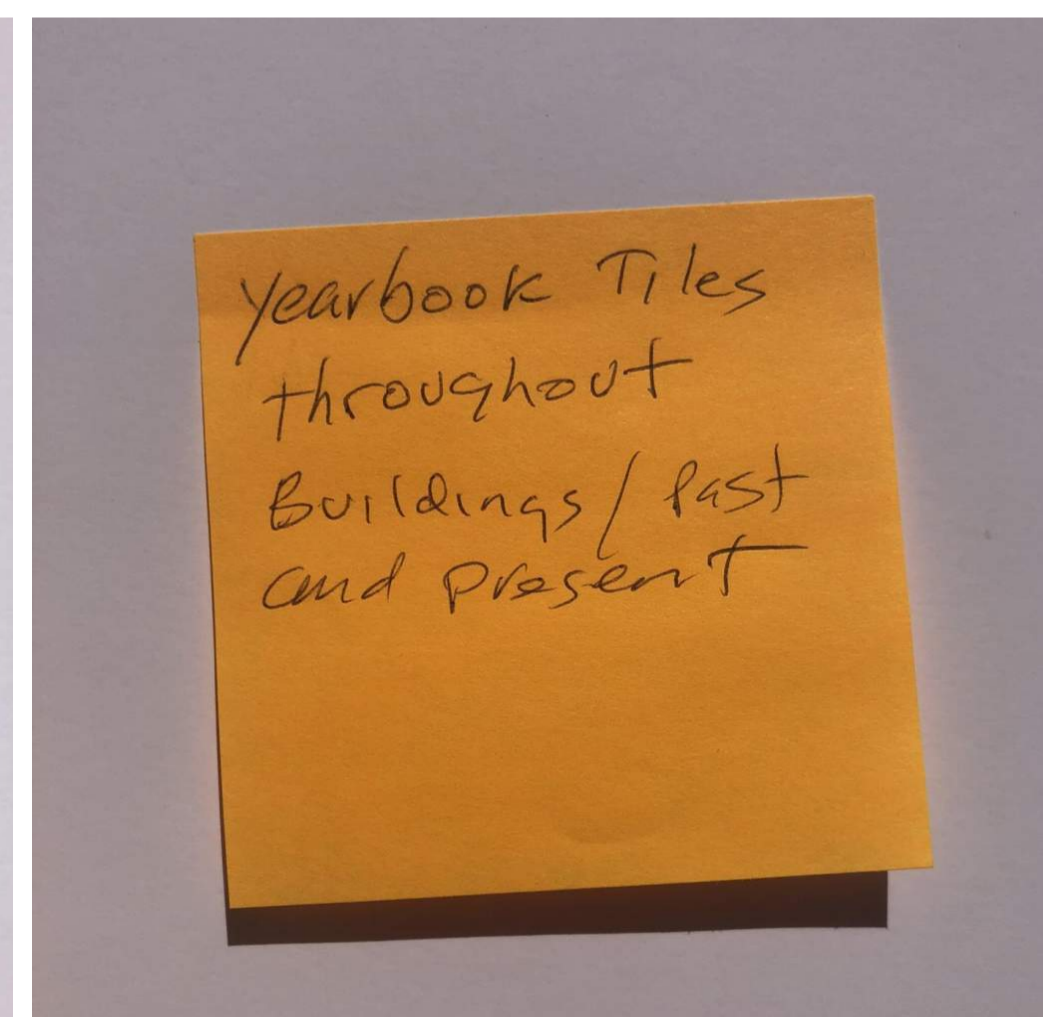 Yearbook Tiles
throughout
Buildings / Past
and present